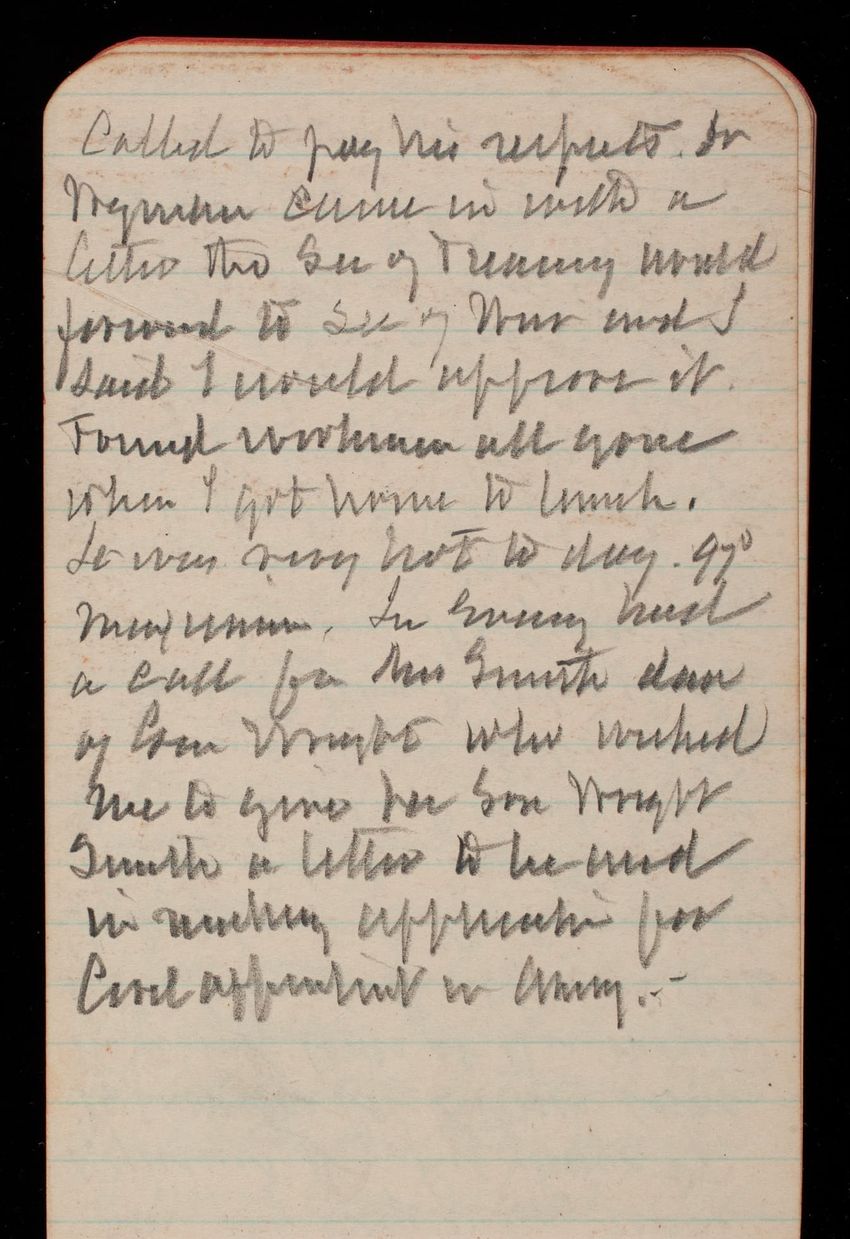 Called to pay his respects. Dr
Wyman came in with a
letter the Sec of Treasury would
forward to Sec of War and I
said I would approve it.
Found workmen all gone
when I got home to lunch.
It was very hot to day. 97°
maximum. In Evening had
a call from Mrs Smith dau
of Gen Wright who wished
me to give her Son Wright
Smith a letter to be used
in making application for
Civil appointmt in Army.-